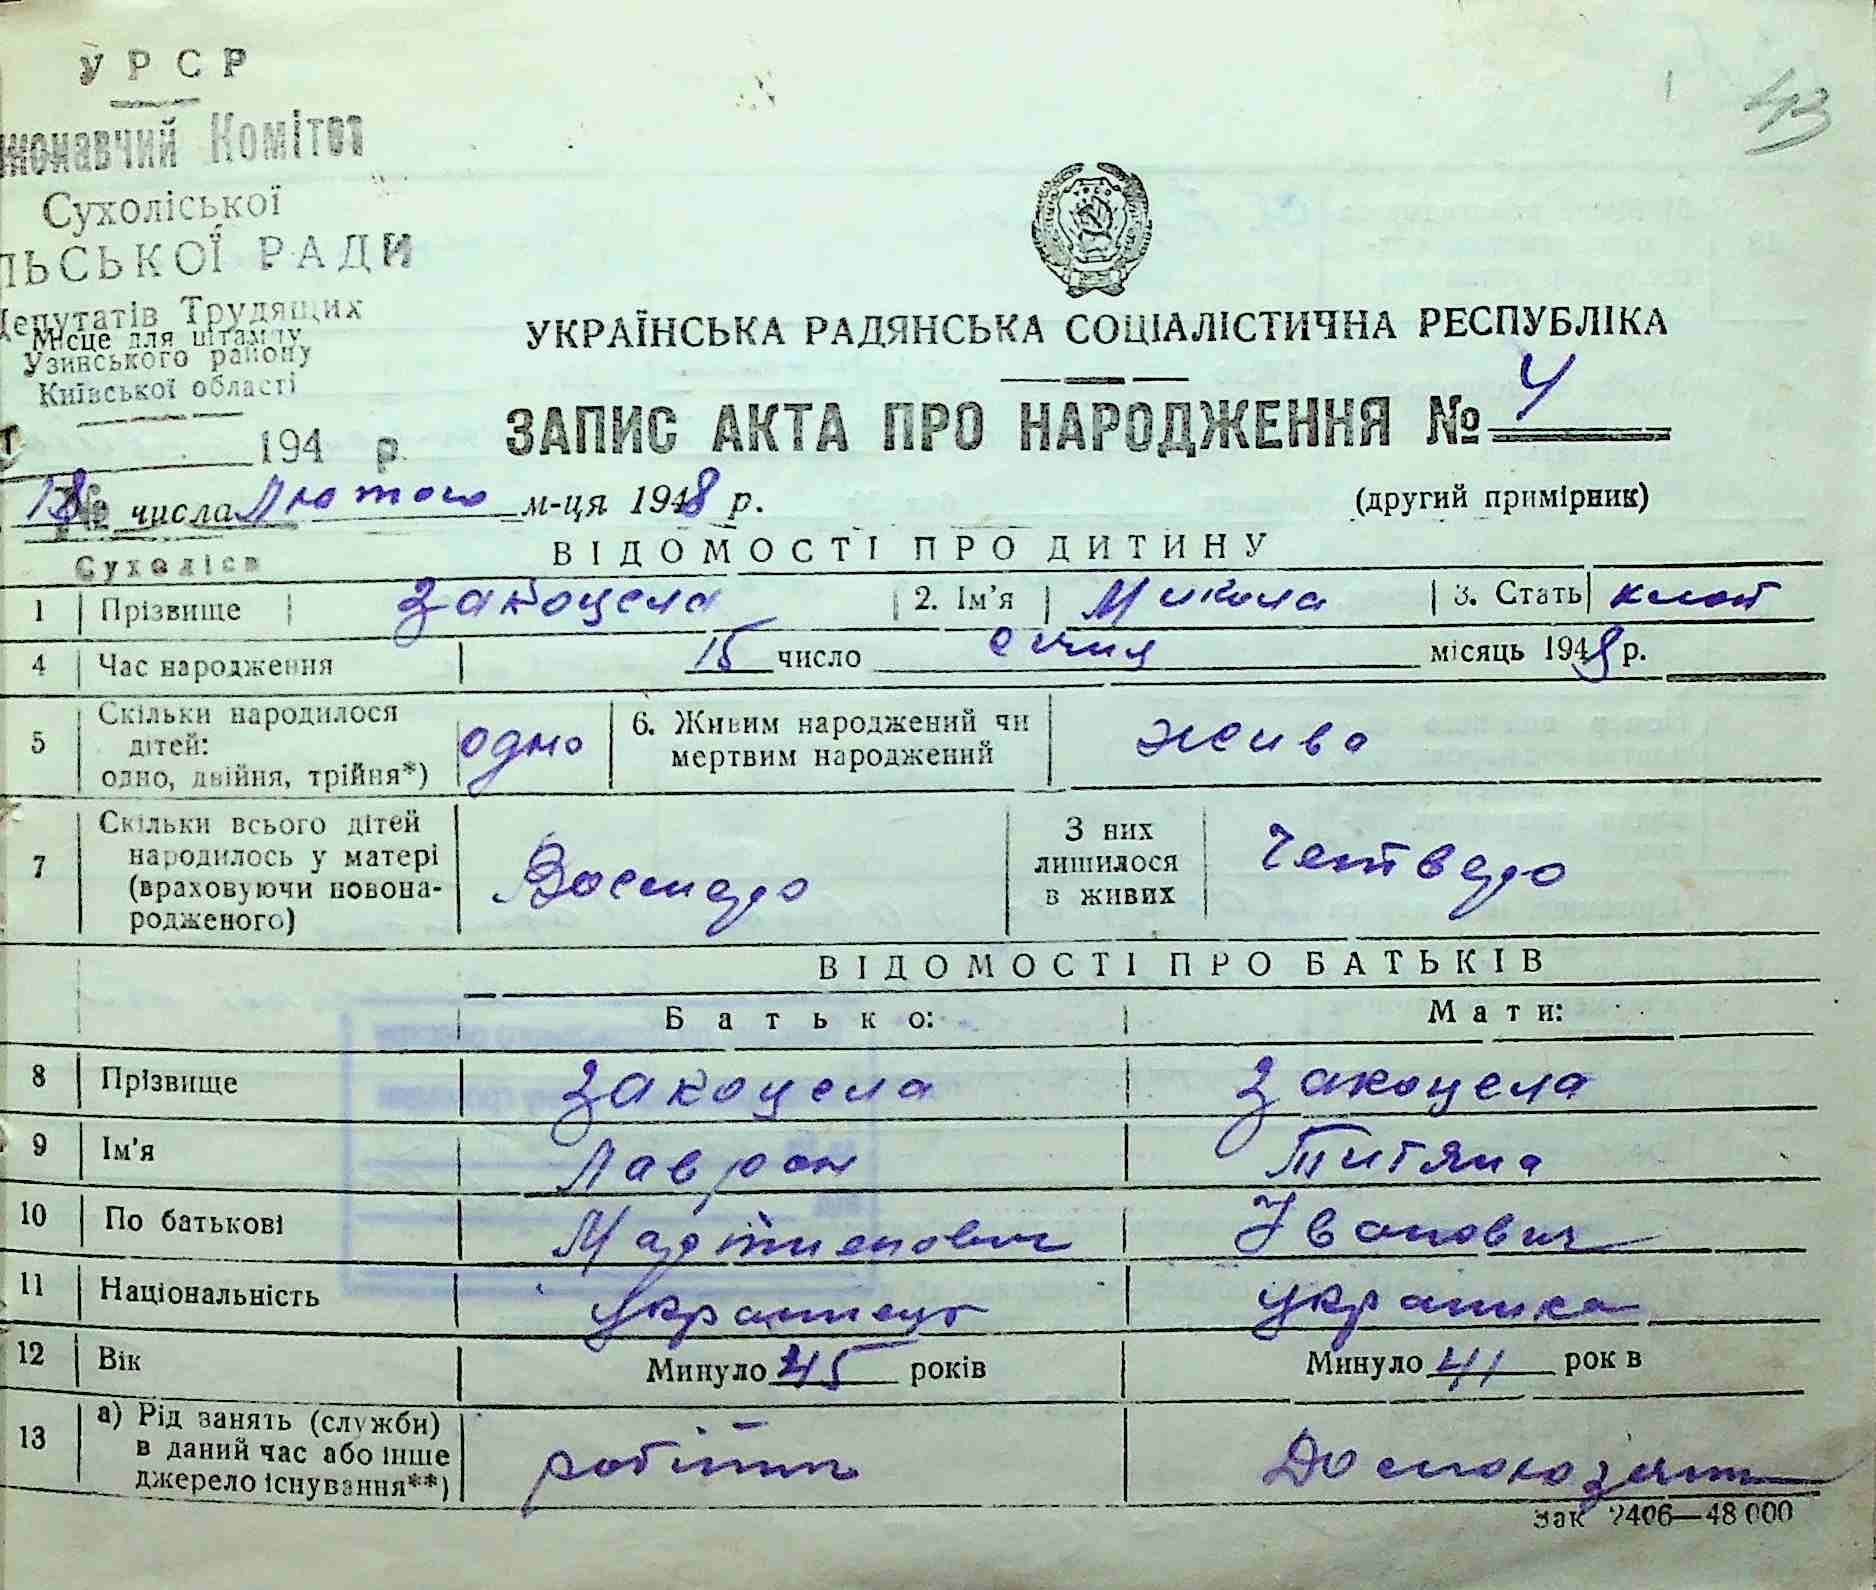 43
УРСР
Сухоліської
ЛЬСЬКОЇ РАДИ
Депутатів Трудящих
Місце для штампу
Узинського району
Київської області
УКРАЇНСЬКА РАДЯНСЬКА СОЦІАЛІСТИЧНА РЕСПУБЛІКА
194 р.
ЗАПИС АКТА ПРО НАРОДЖЕННЯ № 4
18 числа Лютого м-ця 1948 р.
(другий примірник)
Сухоліси
ВІДОМОСТІ ПРО ДИТИНУ
1 Прізвище Закоцела 2. Ім'я Микола 3. Стать
4 Час народження 15 число січня місяць 1948 р.
5 Скільки народилося дітей: одно, двійня, трійня*) одно 6. Живим народжений чи мертвим народжений живо
7 Скільки всього дітей народилось у матері (враховуючи новонародженого) Восмеро З них лишилося в живих Четверо
ВІДОМОСТІ ПРО БАТЬКІВ
Батько: Мати:
8 Прізвище Закоцела Закоцела
9 Ім'я Лаврон Титяна
10 По батькові Мартинович Іванович
11 Національність українець українка
12 Вік Минуло 45 років Минуло 41 рок в
13 а) Рід занять (служби) в даний час або інше джерело існування**)
Зак 2406—48 000